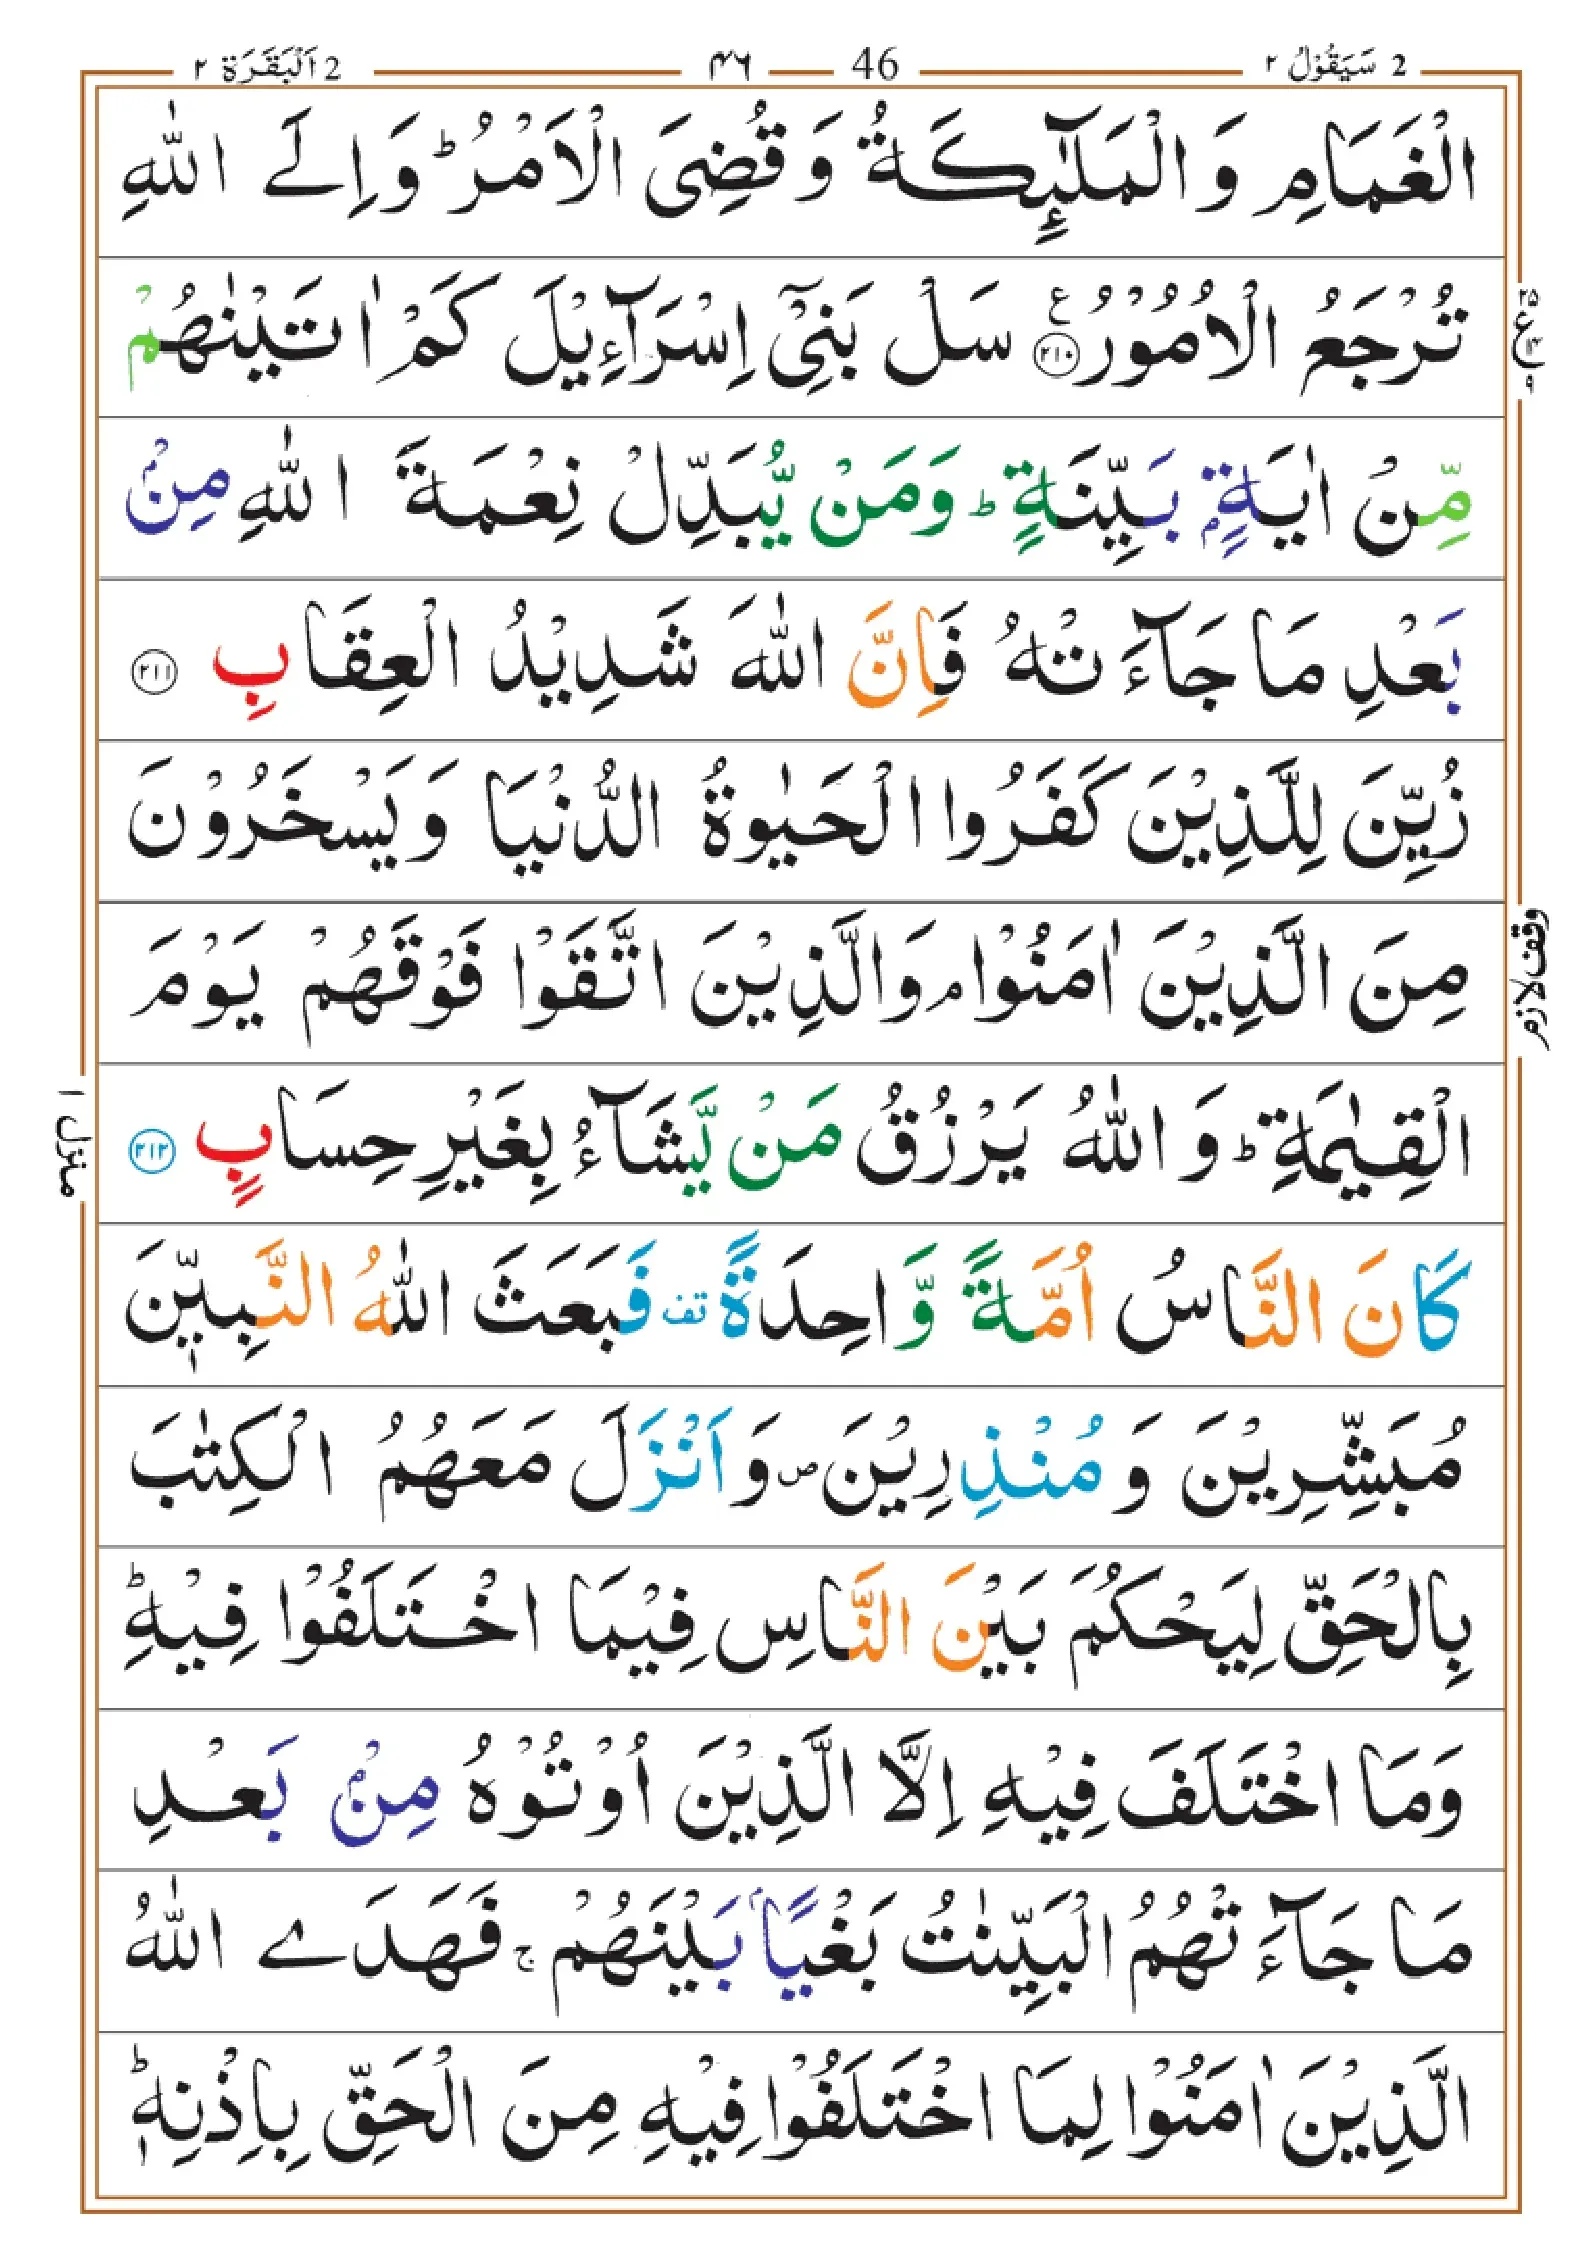 2 سَيَقُوْلُ ٢
46 ٤٦
2 اَلْبَقَرَة ٢
الْغَمَامِ وَ الْمَلٰٓئِكَةُ وَ قُضِیَ الْاَمْرُ ؕ وَ اِلَے اللّٰهِ
تُرْجَعُ الْاُمُوْرُ ﴿٢١٠﴾ ع سَلْ بَنِیْۤ اِسْرَآءِیْلَ كَمْ اٰتَیْنٰهُمْ
ع ٢٥ ٩
مِّنْ اٰیَةٍۭ بَیِّنَةٍ ؕ وَمَنْ یُّبَدِّلْ نِعْمَةَ اللّٰهِ مِنْۢ
بَعْدِ مَا جَآءَ تْهُ فَاِنَّ اللّٰهَ شَدِیْدُ الْعِقَابِ ﴿٢١١﴾
زُیِّنَ لِلَّذِیْنَ كَفَرُوا الْحَیٰوةُ الدُّنْیَا وَیَسْخَرُوْنَ
مِنَ الَّذِیْنَ اٰمَنُوْا ۘ وَالَّذِیْنَ اتَّقَوْا فَوْقَهُمْ یَوْمَ
وقف لازم
الْقِیٰمَةِ ؕ وَ اللّٰهُ یَرْزُقُ مَنْ یَّشَآءُ بِغَیْرِ حِسَابٍ ﴿٢١٢﴾
منزل ١
كَانَ النَّاسُ اُمَّةً وَّاحِدَةً قف فَبَعَثَ اللّٰهُ النَّبِیّٖنَ
مُبَشِّرِیْنَ وَ مُنْذِرِیْنَ ص وَ اَنْزَلَ مَعَهُمُ الْكِتٰبَ
بِالْحَقِّ لِیَحْكُمَ بَیْنَ النَّاسِ فِیْمَا اخْتَلَفُوْا فِیْهِ ؕ
وَمَا اخْتَلَفَ فِیْهِ اِلَّا الَّذِیْنَ اُوْتُوْهُ مِنْۢ بَعْدِ
مَا جَآءَ تْهُمُ الْبَیِّنٰتُ بَغْیًۢا بَیْنَهُمْ ج فَهَدَے اللّٰهُ
الَّذِیْنَ اٰمَنُوْا لِمَا اخْتَلَفُوْا فِیْهِ مِنَ الْحَقِّ بِاِذْنِهٖ ؕ